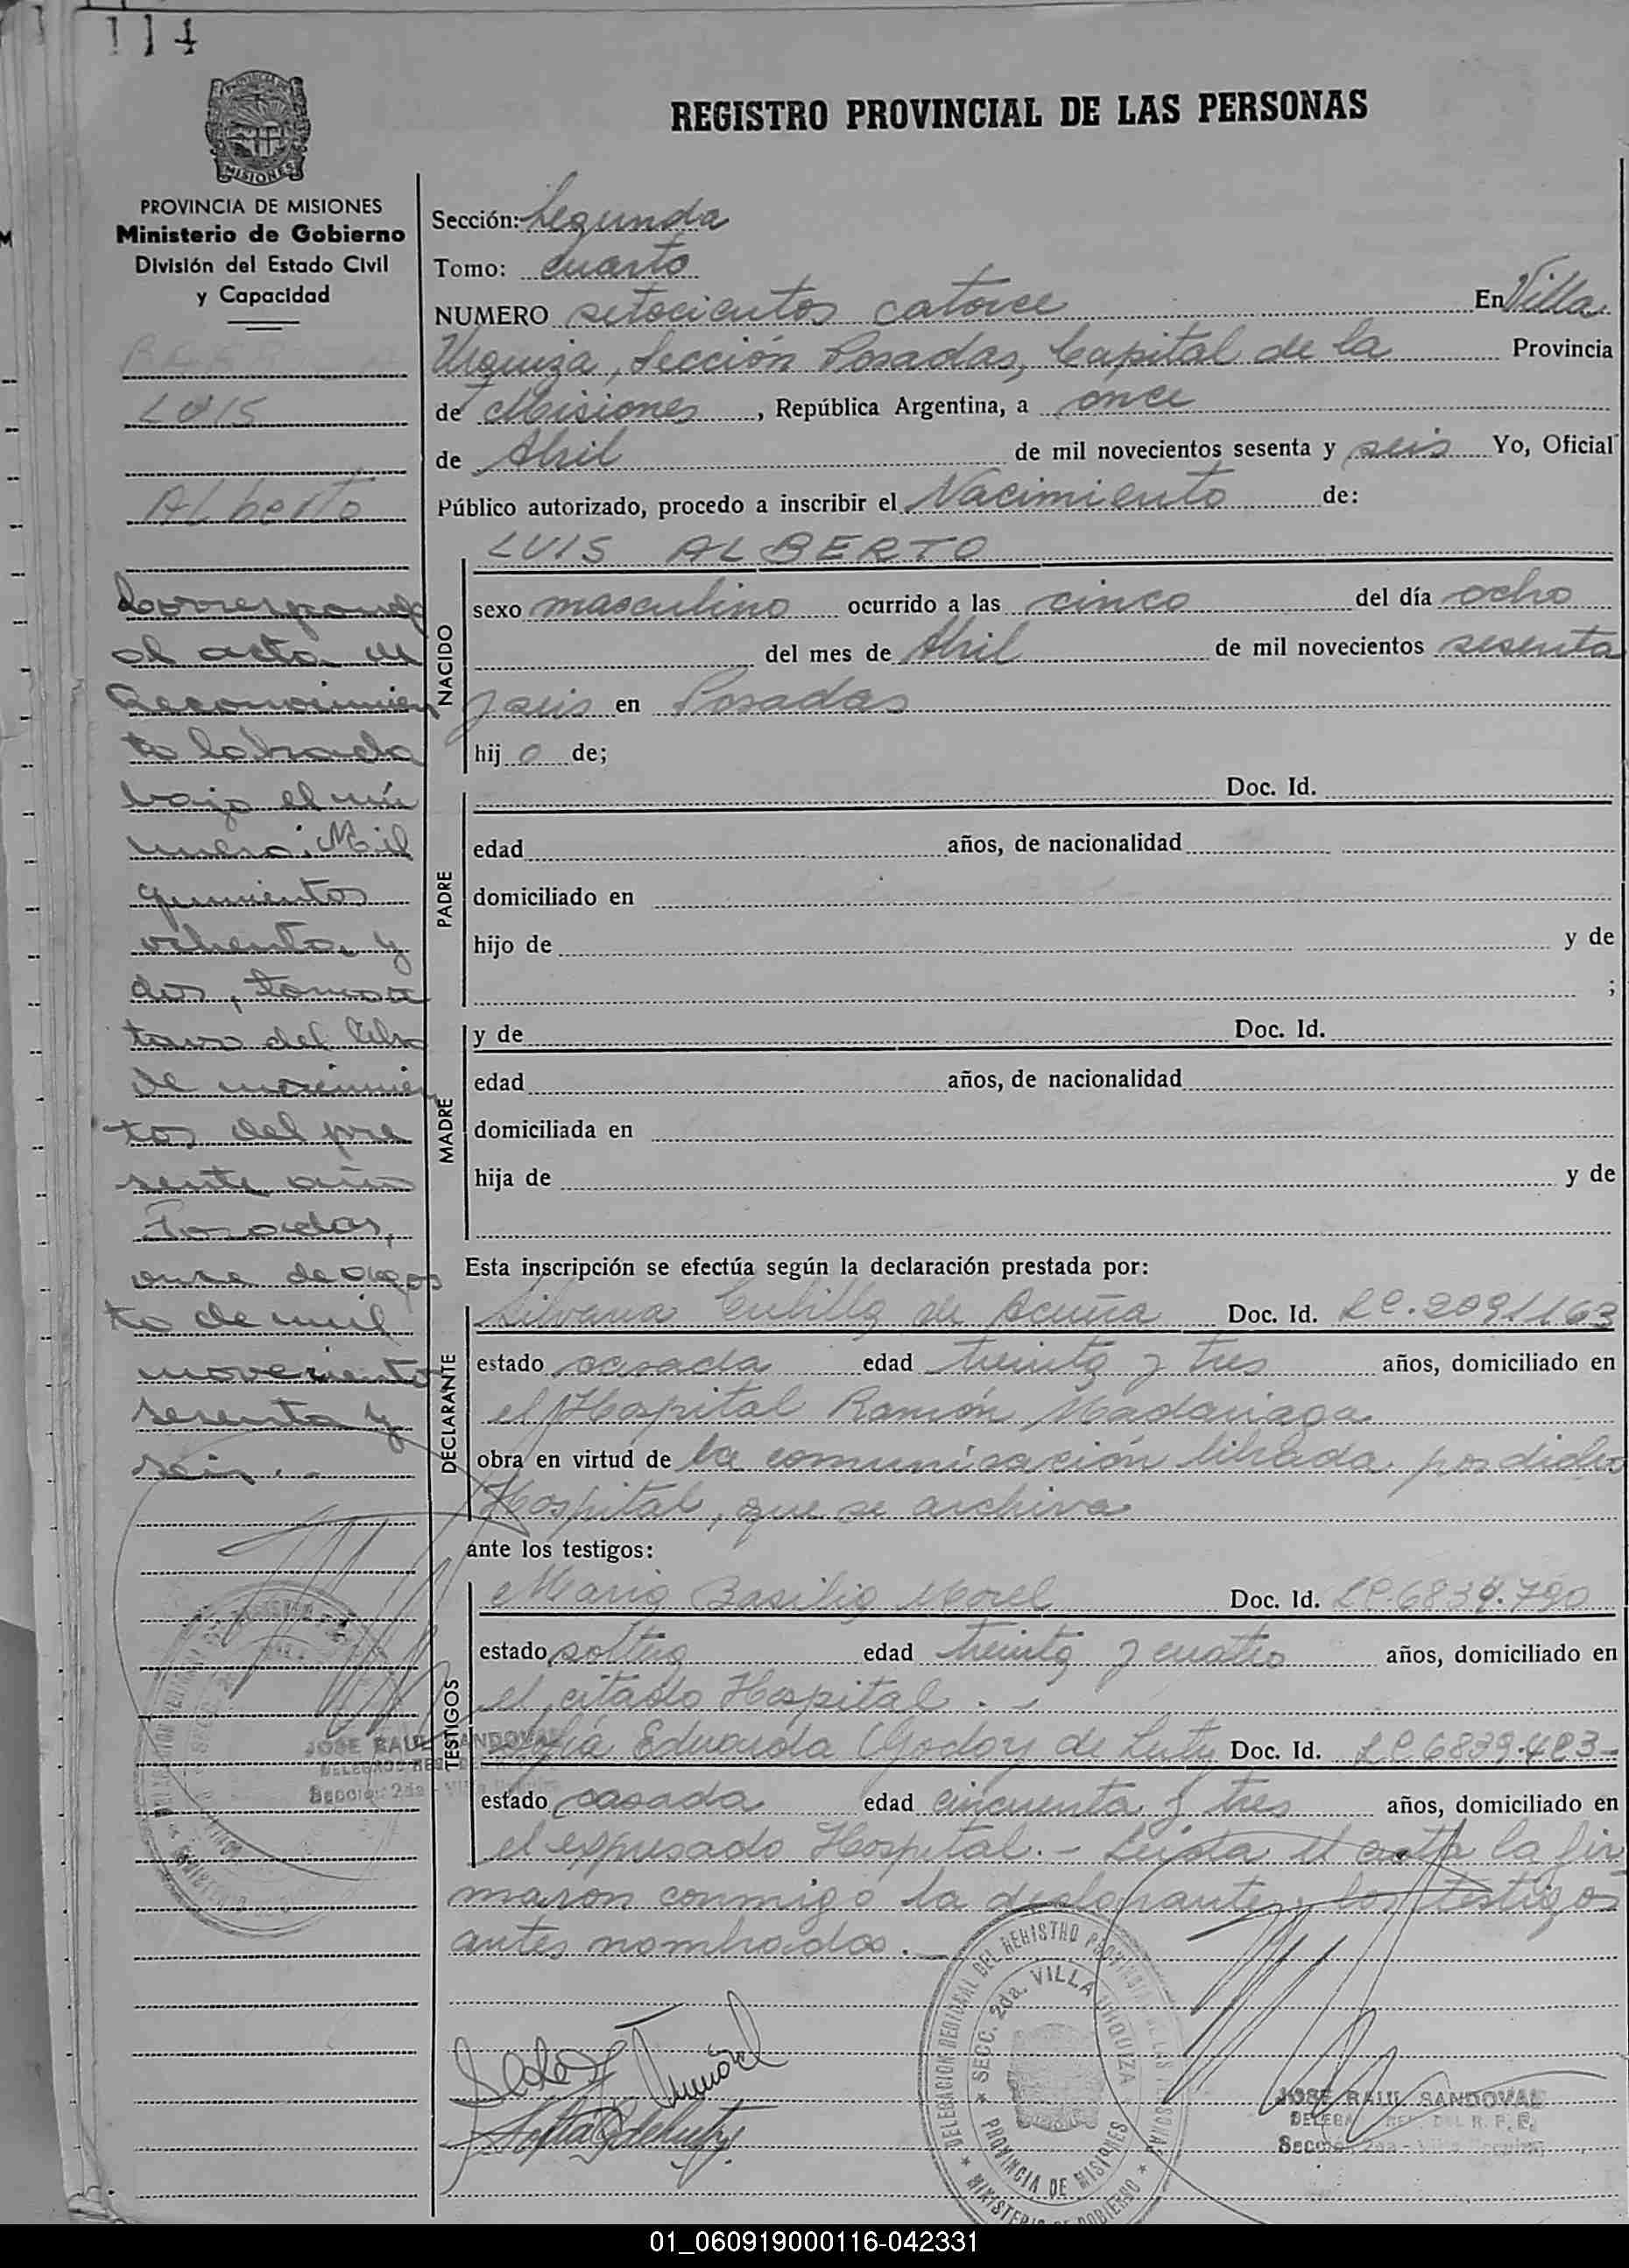 114
REGISTRO PROVINCIAL DE LAS PERSONAS
MISIONES
PROVINCIA DE MISIONES
Ministerio de Gobierno
División del Estado Civil
y Capacidad
LUIS
Alberto
Corresponde
al acta de
Reconocimien
to labrada
bajo el nú
mero: Mil
quinientos
ochenta y
dos, tomo oc
tavo del libro
de nacimien
tos del pre
sente año
Posadas,
once de agos
to de mil
novecientos
sesenta y
seis.-
Sección: Segunda
Tomo: Cuarto
NUMERO setecientos catorce En Villa
Urquiza, Sección Posadas, Capital de la Provincia
de Misiones, República Argentina, a once
de Abril de mil novecientos sesenta y seis Yo, Oficial
Público autorizado, procedo a inscribir el Nacimiento de:
LUIS ALBERTO
NACIDO
sexo masculino ocurrido a las cinco del día ocho
del mes de Abril de mil novecientos sesenta
y seis en Posadas
hij o de;
PADRE
Doc. Id.
edad años, de nacionalidad
domiciliado en
hijo de y de
;
MADRE
y de Doc. Id.
edad años, de nacionalidad
domiciliada en
hija de y de
Esta inscripción se efectúa según la declaración prestada por:
DECLARANTE
Silvana Cubilla de Acuña Doc. Id. LC.2091163
estado casada edad treinta y tres años, domiciliado en
el Hospital Ramón Madariaga
obra en virtud de la comunicación librada por dicho
Hospital, que se archiva
ante los testigos:
TESTIGOS
Maria Basilia Morel Doc. Id. LC.6834.790
estado soltera edad treinta y cuatro años, domiciliado en
el citado Hospital.-
Eduarda Godoy de Doc. Id. LC 6839.483-
estado casada edad cincuenta y tres años, domiciliado en
el expresado Hospital.- Leída el acta la fir
maron conmigo la declarante y los testigos
antes nombrados.-
JOSE RAUL SANDOVAL
Sección 2da - Villa
DELEGACION REGIONAL DEL REGISTRO PROVINCIAL DE LAS PERSONAS
SECC. 2da. VILLA URQUIZA
PROVINCIA DE MISIONES
MINISTERIO DE GOBIERNO
JOSE RAUL SANDOVAL
DELEGADO REG. DEL R. P. P.
Sección 2da - Villa Urquiza
01_060919000116-042331